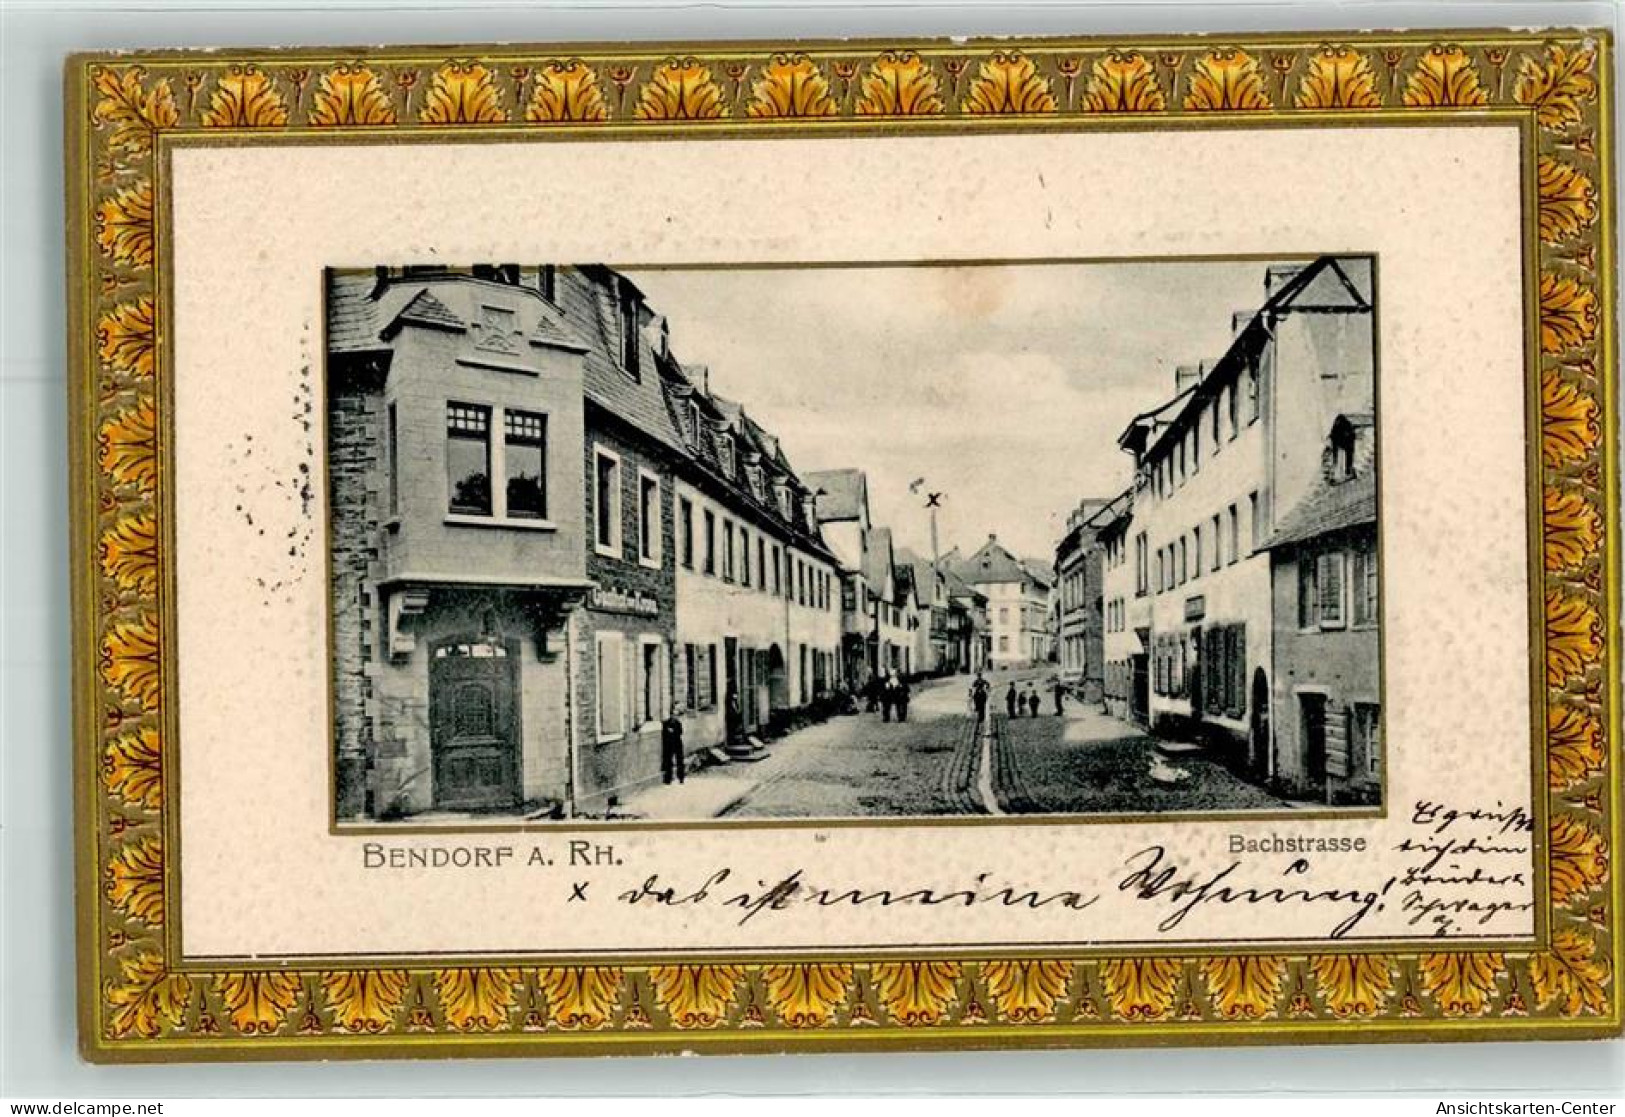 x
BENDORF A. RH.
Bachstrasse
x das ist meine Wohnung!
Es grüßt
dich dein
Bruder u.
Schwager
www.delcampe.net
Ansichtskarten-Center